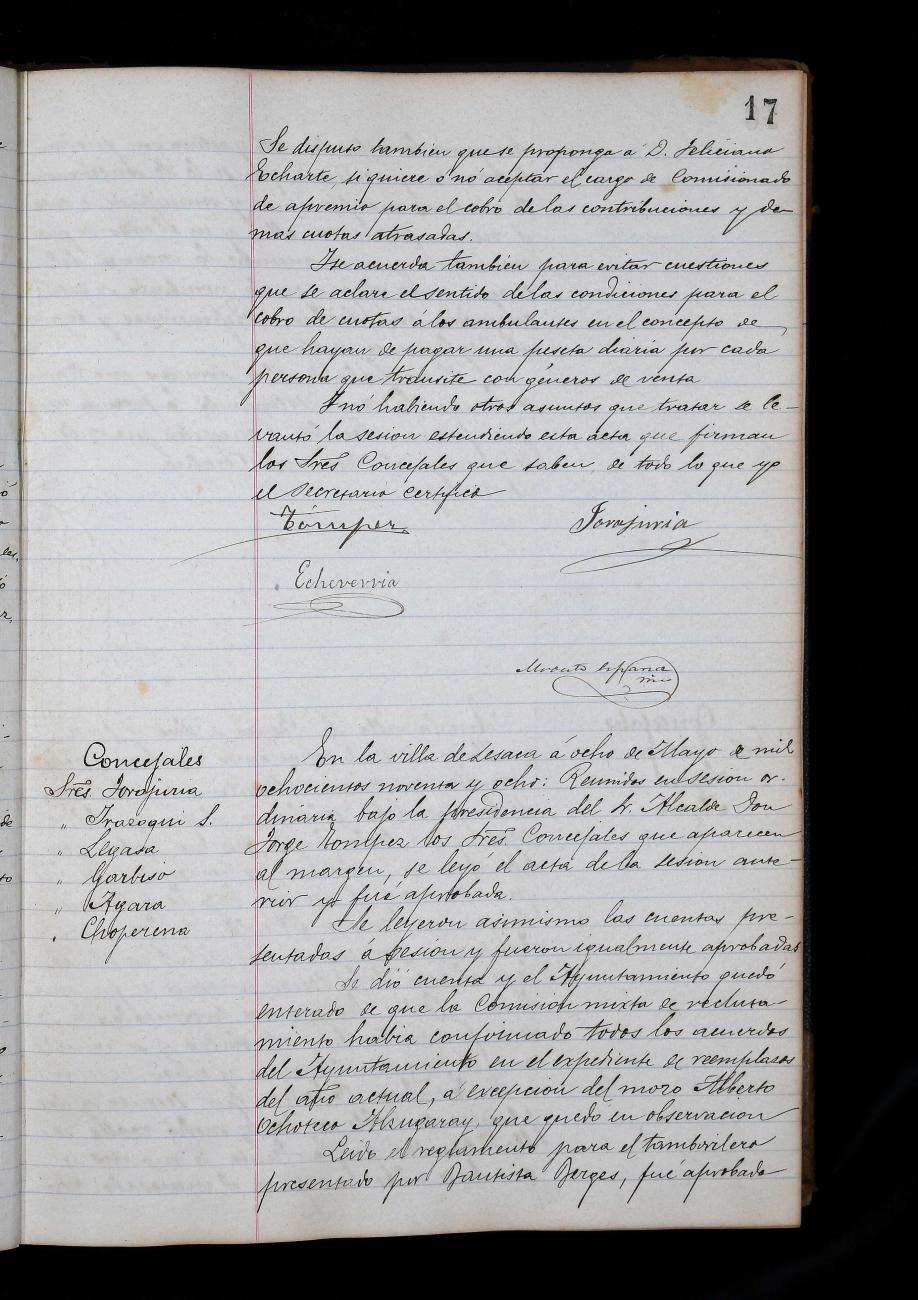 17
Se dispuso tambien que se proponga á D. Feliciano
Echarte, si quiere ó nó aceptar el cargo de Comisionado
de apremio para el cobro de las contribuciones y de
mas cuotas atrasadas.
Ise acuerda tambien para evitar cuestiones
que se aclare el sentido de las condiciones para el
cobro de cuotas á los ambulantes en el concepto de
que hayan de pagar una peseta diaria por cada
persona que transite con géneros de venta
I nó habiendo otros asuntos que tratar se le-
vantó la sesion estendiendo esta acta que firman
los Sres Concejales que saben, de todo lo que yo
el Secretario certifico
Tómpez
Jorajuria
Echeverria
España
Concejales
Sres. Jorajuria
" Irazoqui S.
" Legasa
" Garbiso
" Agara
" Choperena
En la villa de Lesaca á ocho de Mayo de mil
ochocientos noventa y ocho: Reunidos en sesion or-
dinaria bajo la presidencia del Sr. Alcalde Don
Jorge Tompez los Sres. Concejales que aparecen
al margen, se leyó el acta de la sesion ante-
rior y fué aprobada.
Se leyeron asimismo las cuentas pre-
sentadas á sesión y fueron igualmente aprobadas
Se dió cuenta y el Ayuntamiento quedó
enterado de que la Comision mixta de recluta-
miento habia confirmado todos los acuerdos
del Ayuntamiento en el expediente de reemplazos
del año actual, á excepcion del mozo Alberto
Ochoteco Alzugaray, que quedo en observacion
Leido el reglamento para el tamborilero
presentado por Bautista Berges, fué aprobado